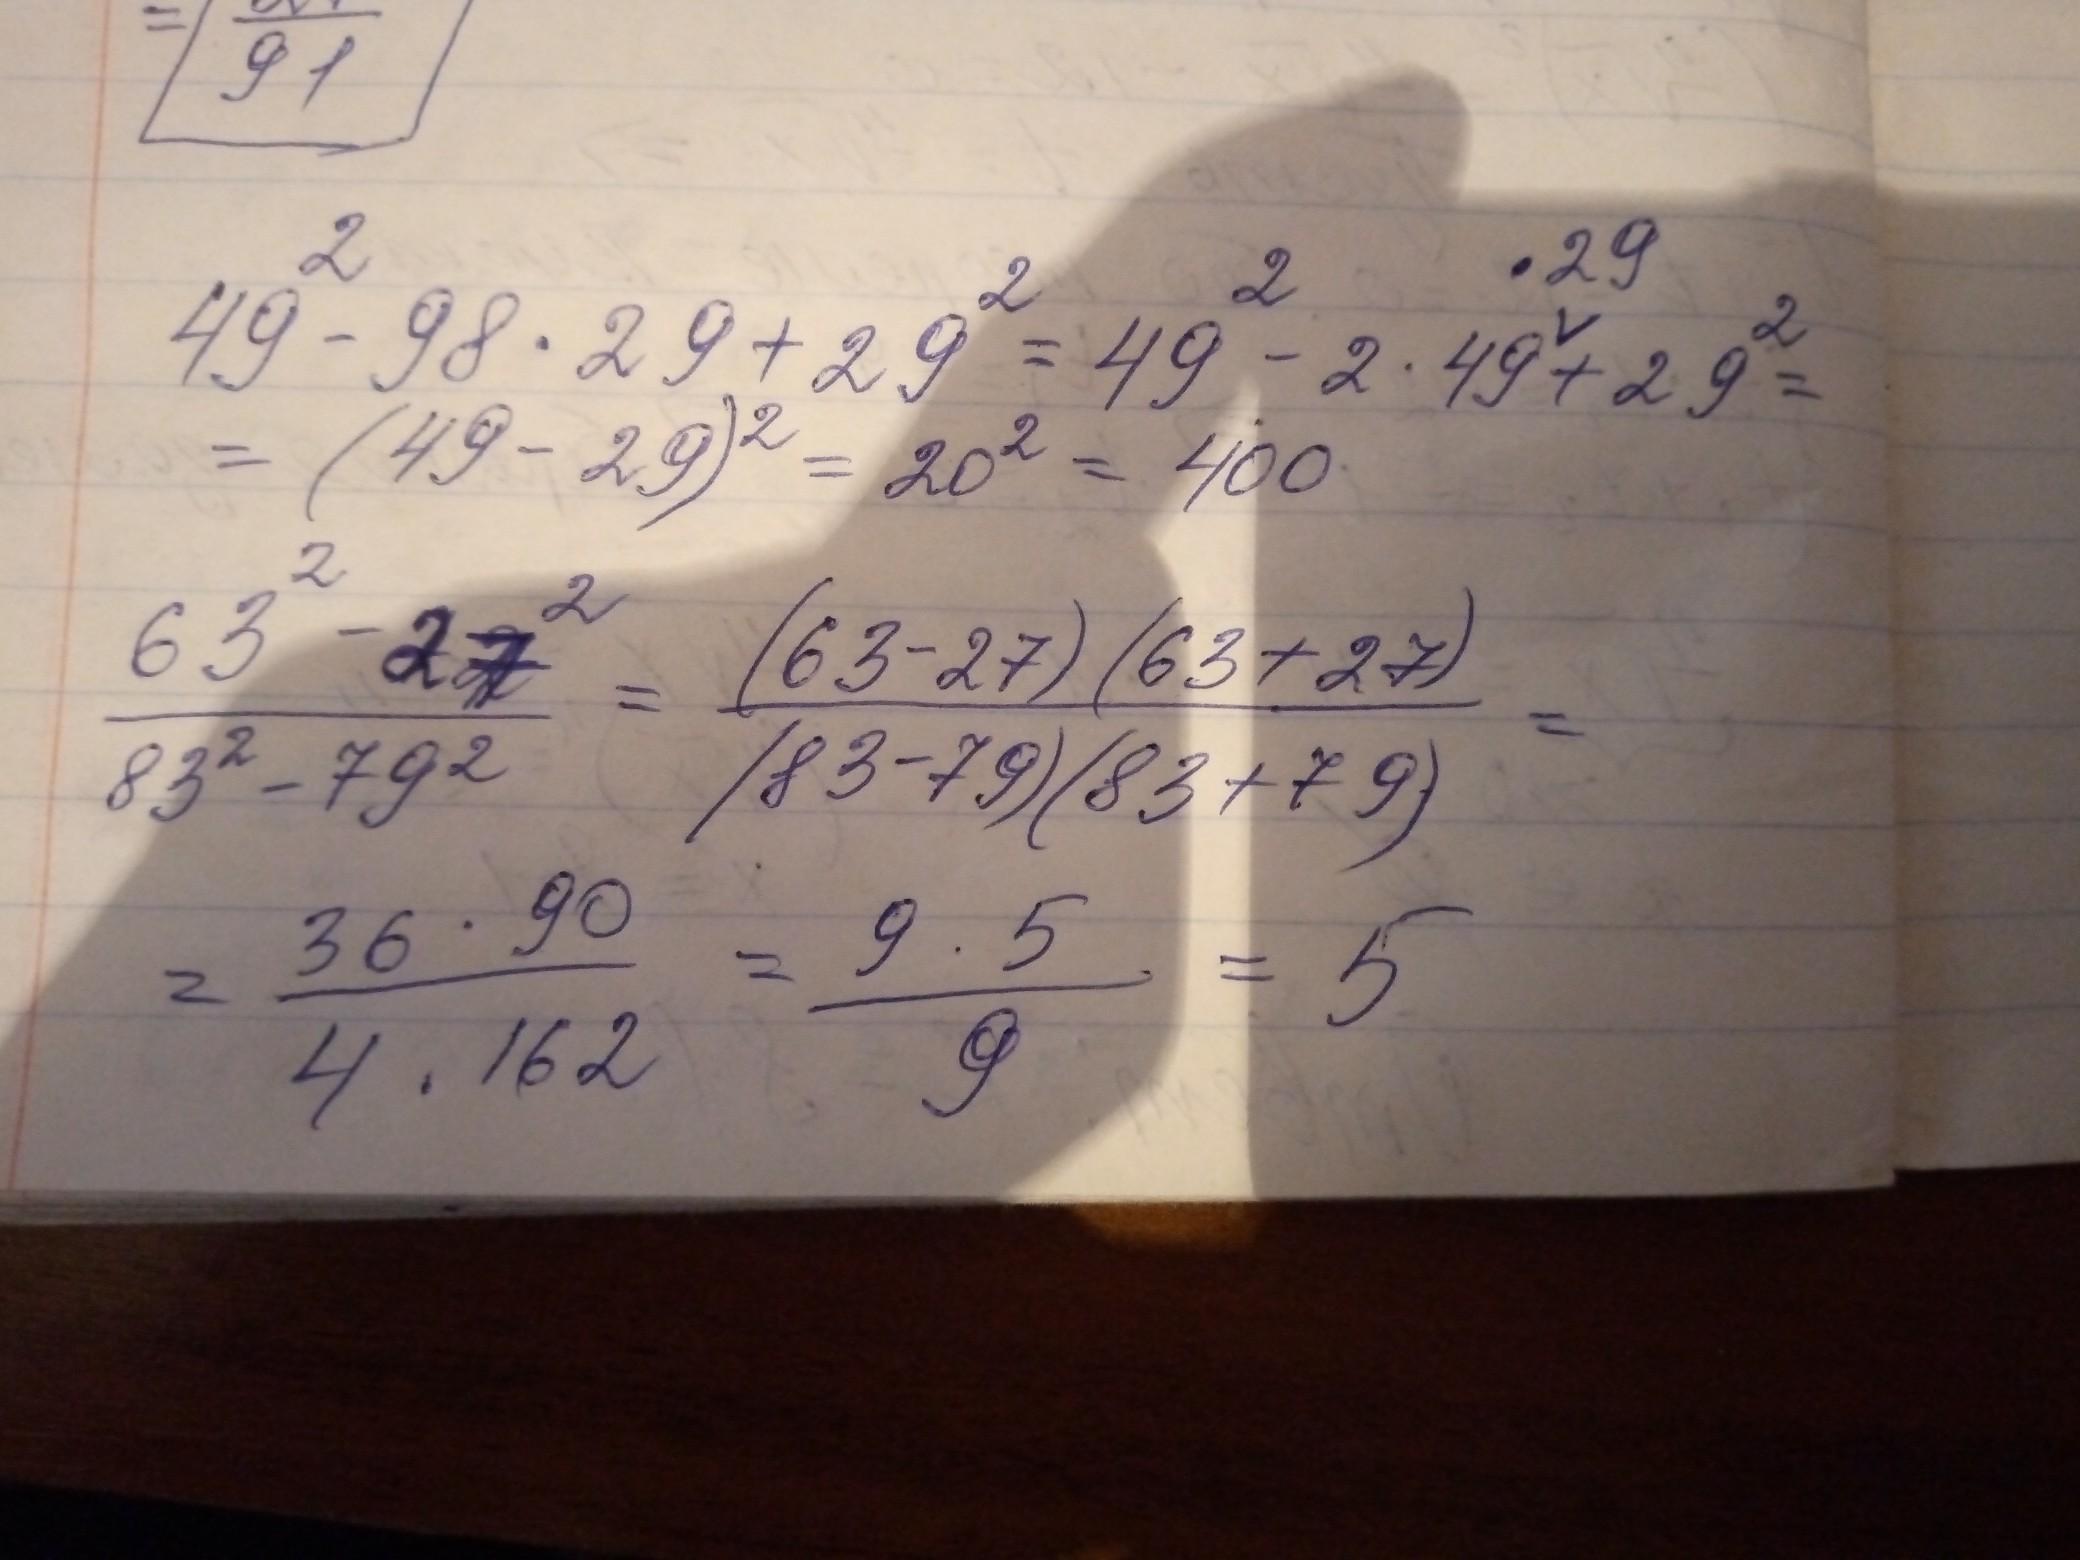 = 91
49² - 98 · 29 + 29² = 49² - 2 · 49 · 29 + 29² =
= (49 - 29)² = 20² = 400
(63² - 27²)/(83² - 79²) = ((63 - 27)(63 + 27))/((83 - 79)(83 + 79)) =
= (36 · 90)/(4 · 162) = (9 · 5)/9 = 5